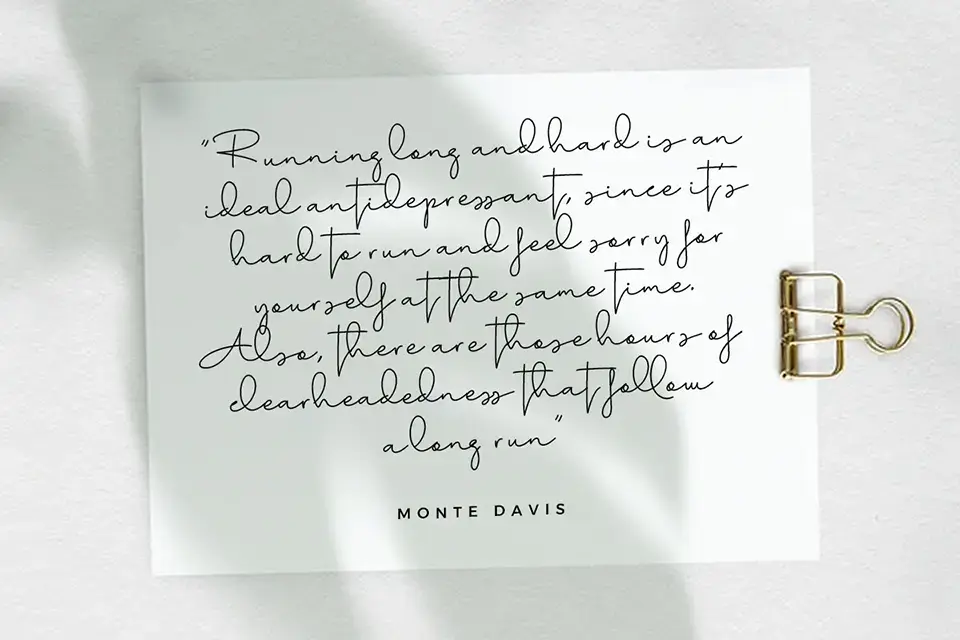 "Running long and hard is an
ideal antidepressant, since it's
hard to run and feel sorry for
yourself at the same time.
Also, there are those hours of
clearheadedness that follow
a long run"
MONTE DAVIS